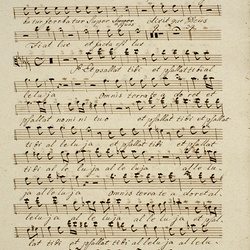 batur ferebatur super super dixit que Deus
Fiat lux et facta est lux
et psallat tibi et psallat tibi al
leluja omnis terra te adoret et
psallat nomini tuo et psallat tibi et psallat
tibi alleluja et psallat tibi alleluja
ja alleluja omnis terra te adoret al
leluja alleluja alleluja et psal
lat tibi et psallat tibi alleluja allelu